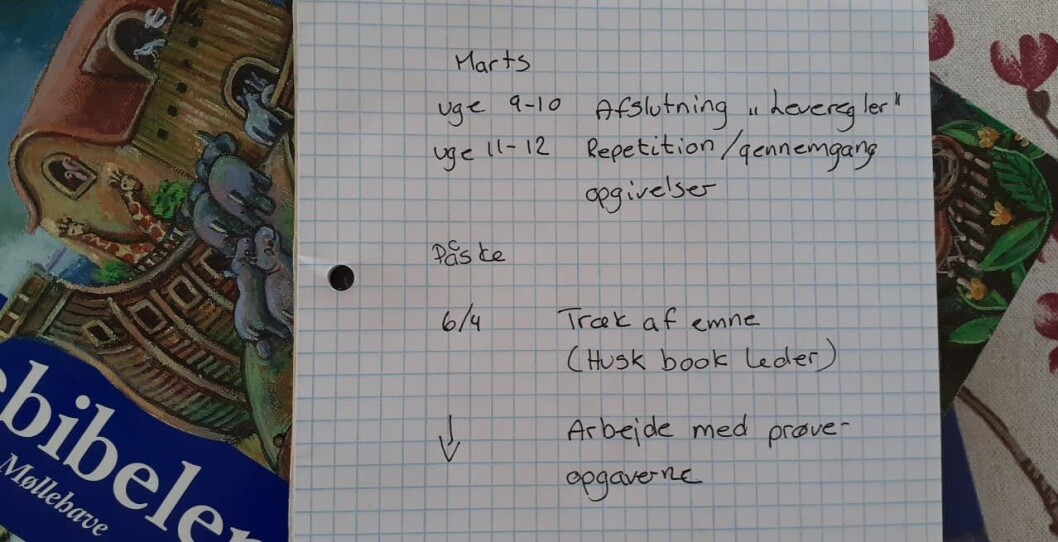 Marts
uge 9-10 Afslutning „Leveregler"
uge 11-12 Repetition/gennemgang
opgivelser
Påske
6/4 Træk af emne
(Husk book leder)
↓ Arbejde med prøve-
opgaverne
ebibelen
Møllehave